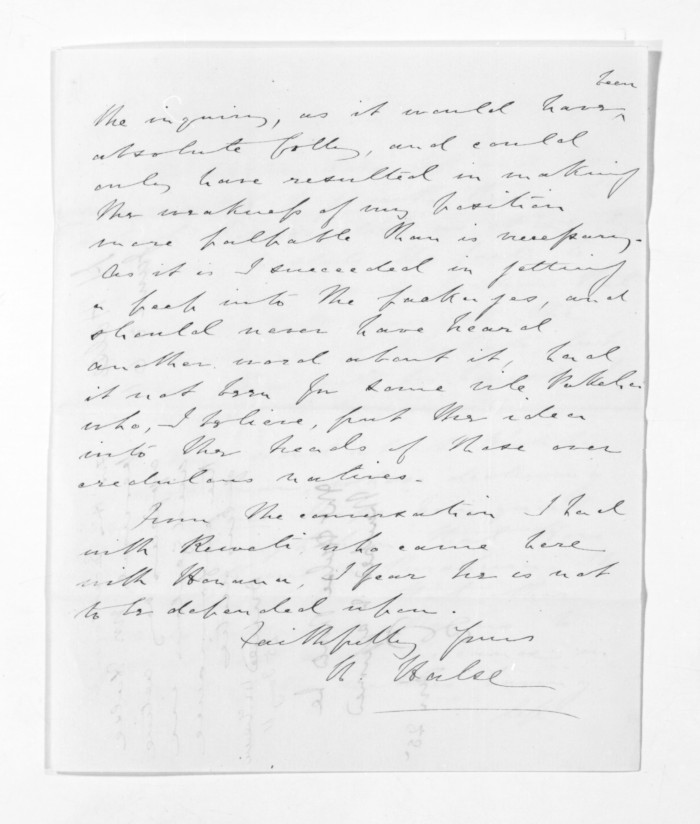 been
the inquiry, as it would have ^
absolute folly, and could
only have resulted in making
the weakness of my position
more palpable than is necessary.
As it is I succeeded in getting
a peep into the packages, and
should never have heard
another word about it, had
it not been for some vile Pakeha
who, I believe, put the idea
into the heads of those over
credulous natives.
From the conversation I had
with Rewati who came here
with Honana, I fear he is not
to be depended upon.
Faithfully Yours
H. Halse